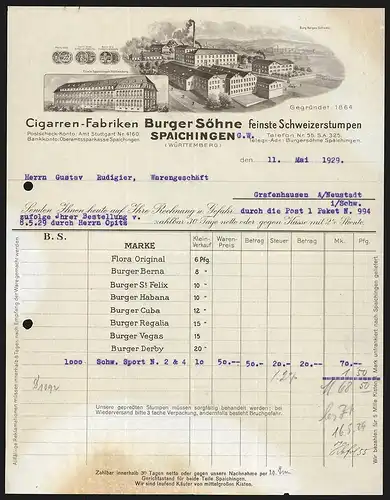 Gegründet 1864
Cigarren-Fabriken Burger Söhne feinste Schweizerstumpen
Postscheck-Konto: Amt Stuttgart Nr. 4160
SPAICHINGEN G.W.
Telefon Nr. 55, S.A. 325
Bankkonto: Oberamtssparkasse Spaichingen
(WÜRTTEMBERG)
Telegr.-Adr.: Burgersöhne Spaichingen
den 11. Mai 1929.
Herrn Gustav Rudigier, Warengeschäft
Grafenhausen A/Neustadt
i/Schw.
Senden Ihnen heute auf Ihre Rechnung u. Gefahr durch die Post 1 Paket N. 994
zufolge Ihrer Bestellung v. zahlbar 30 Tage netto oder gegen Kasse mit 2% Skonto.
8.5.29 durch Herrn Opitz
B. S.
MARKE Klein-Verkauf Waren-Preis Betrag Steuer Betrag Mk. Pfg.
Flora Original 6 Pfg.
Burger Berna 8 "
Burger St Felix 10 "
Burger Habana 10 "
Burger Cuba 12 "
Burger Regalia 15 "
Burger Vegas 15 "
Burger Derby 20 "
1000 Schw. Sport N. 2 & 4 10 50.- 50.- 20.- 20.- 70.-
1 50
68 50
Unsere gepreßten Stumpen müssen sorgfältig behandelt werden; bei
Wiederversand bitte 3 fache Verpackung, andernfalls besteht Bruchgefahr.
Zahlbar innerhalb 30 Tagen netto oder gegen unsere Nachnahme per
Gerichtsstand für beide Teile Spaichingen.
Wir sind laufend Käufer von mittelgroßen Kisten.
Allfällige Reklamationen müssen innerhalb 8 Tagen nach Empfang der Ware gemacht werden.